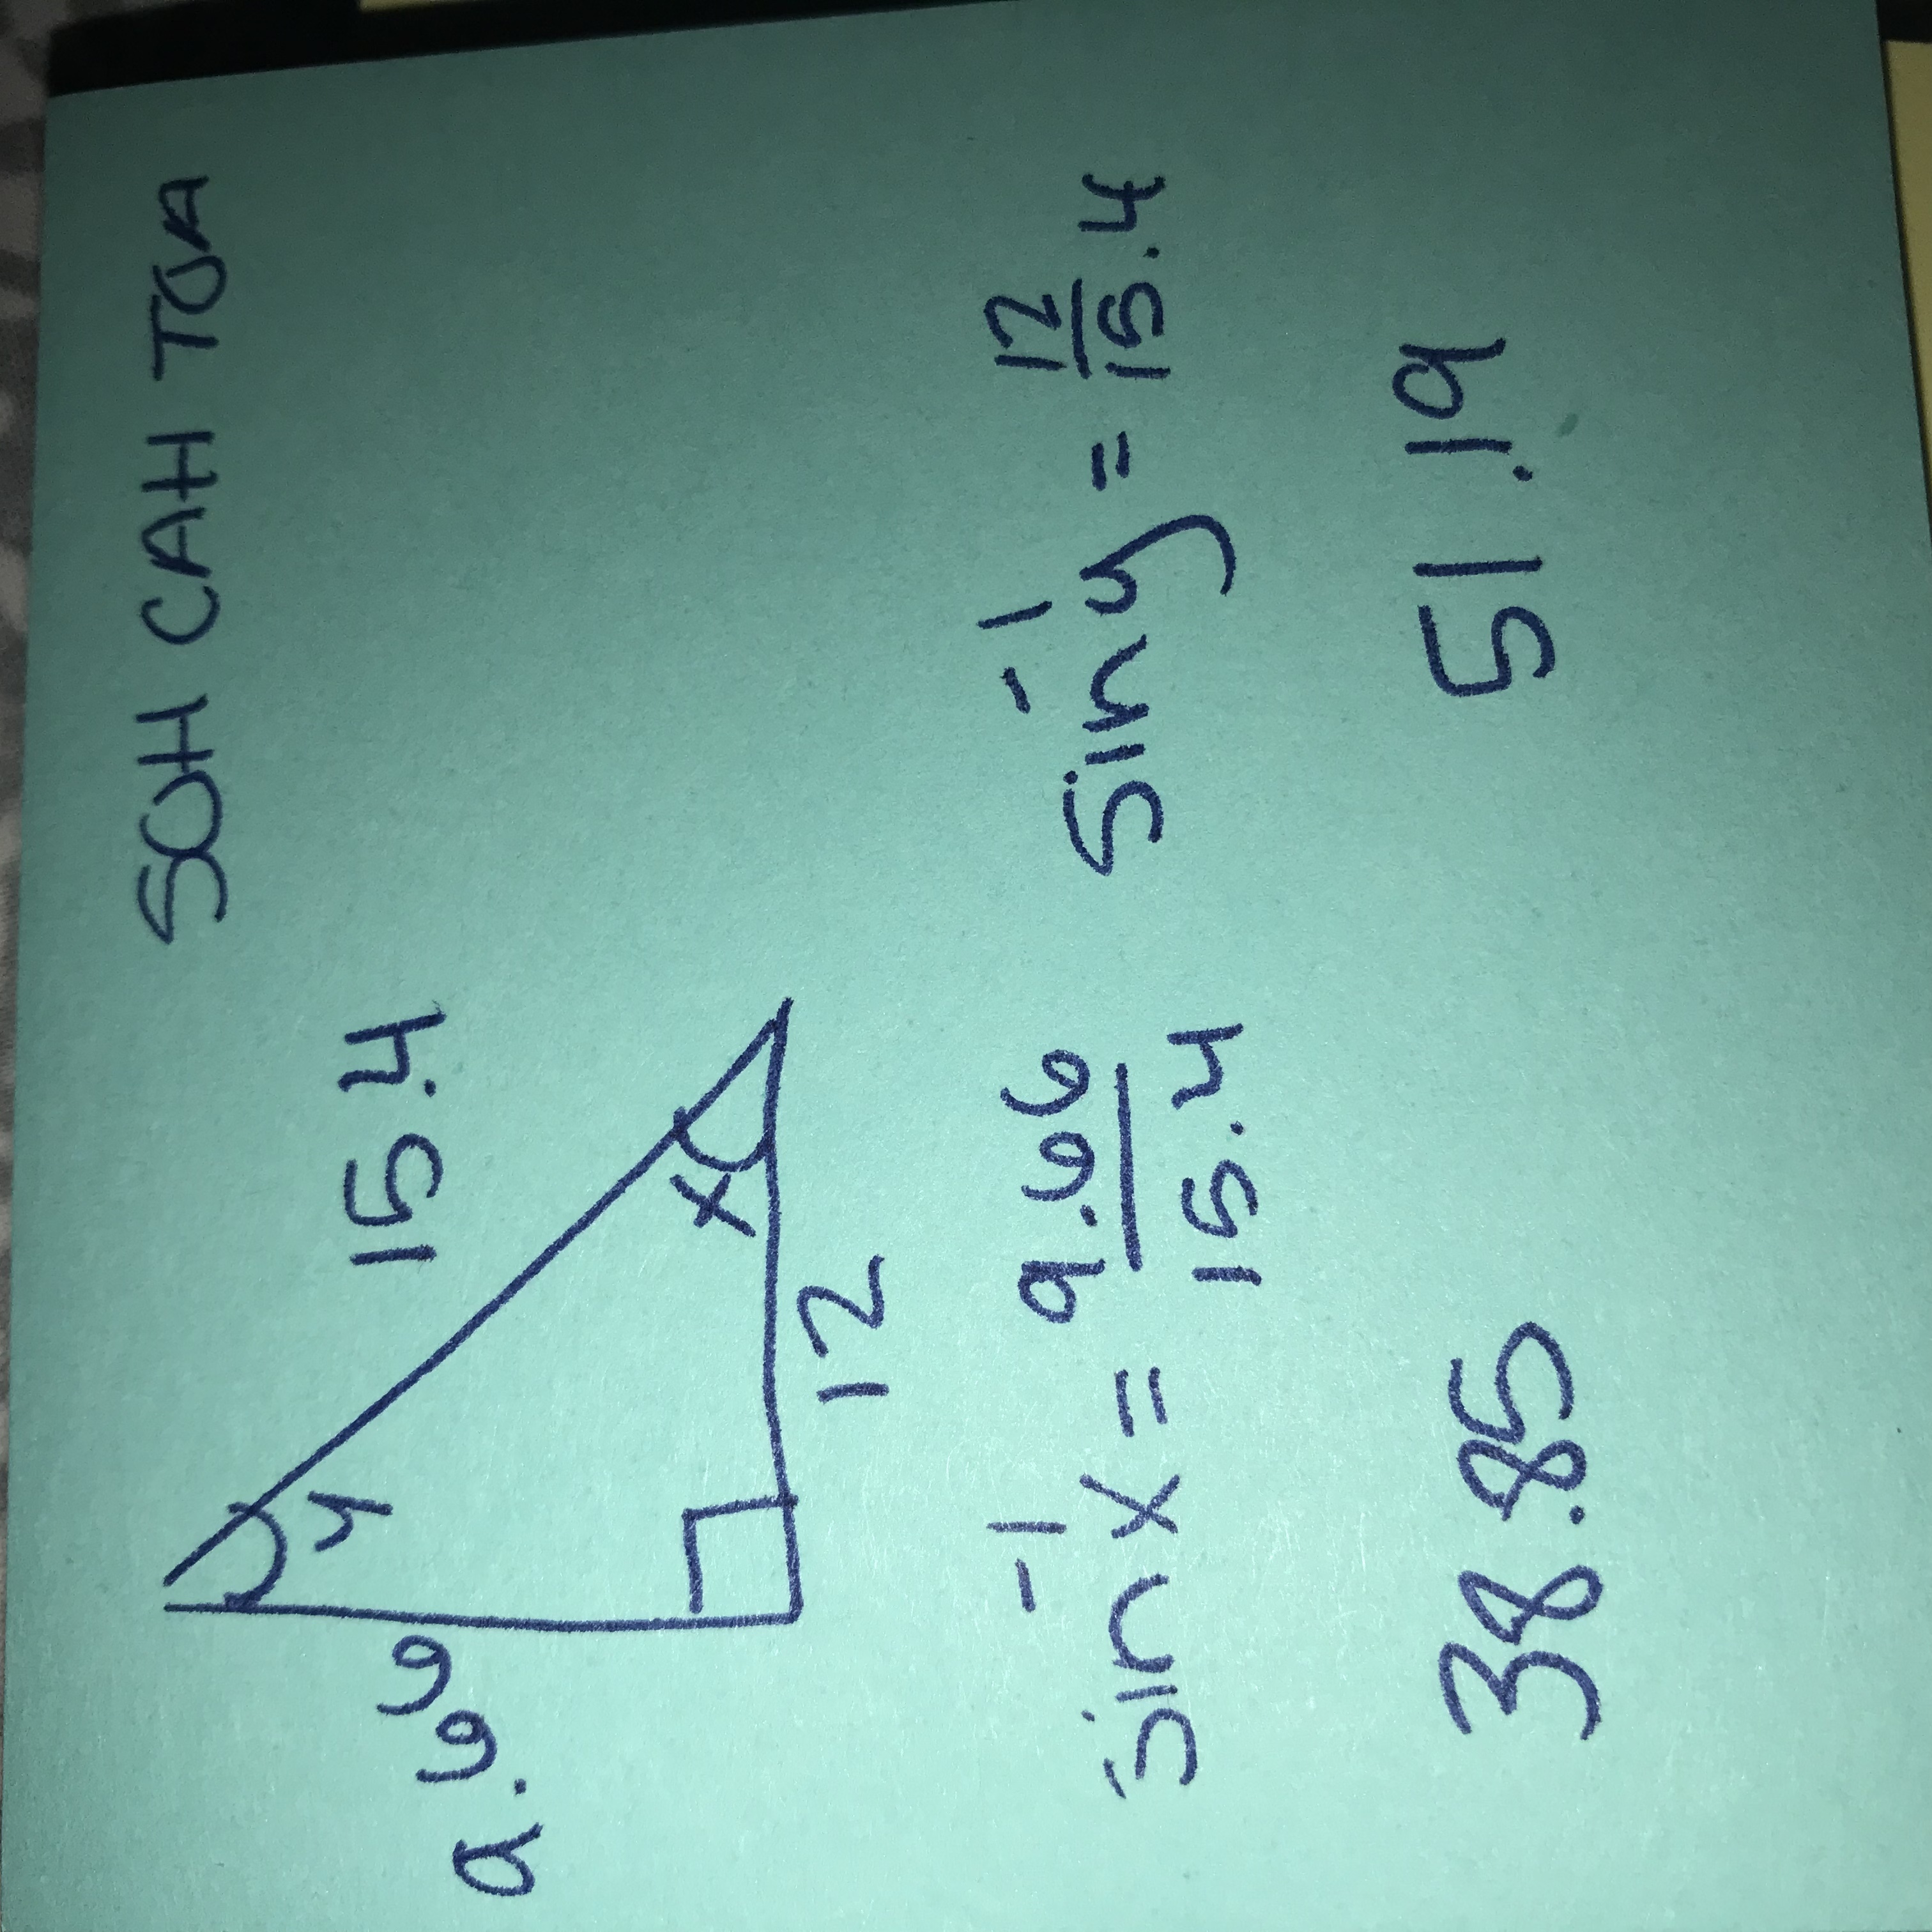 SOH CAH TOA
15.4
9.66
y
x
12
sin⁻¹x = 9.66/15.4
sin⁻¹y = 12/15.4
38.85
51.19